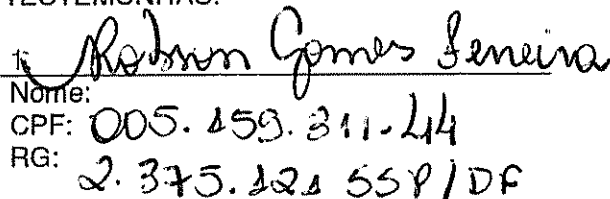 TESTEMUNHAS:
1. Robson Gomes Ferreira
Nome:
CPF: 005.159.311-44
RG: 2.375.121 SSP/DF